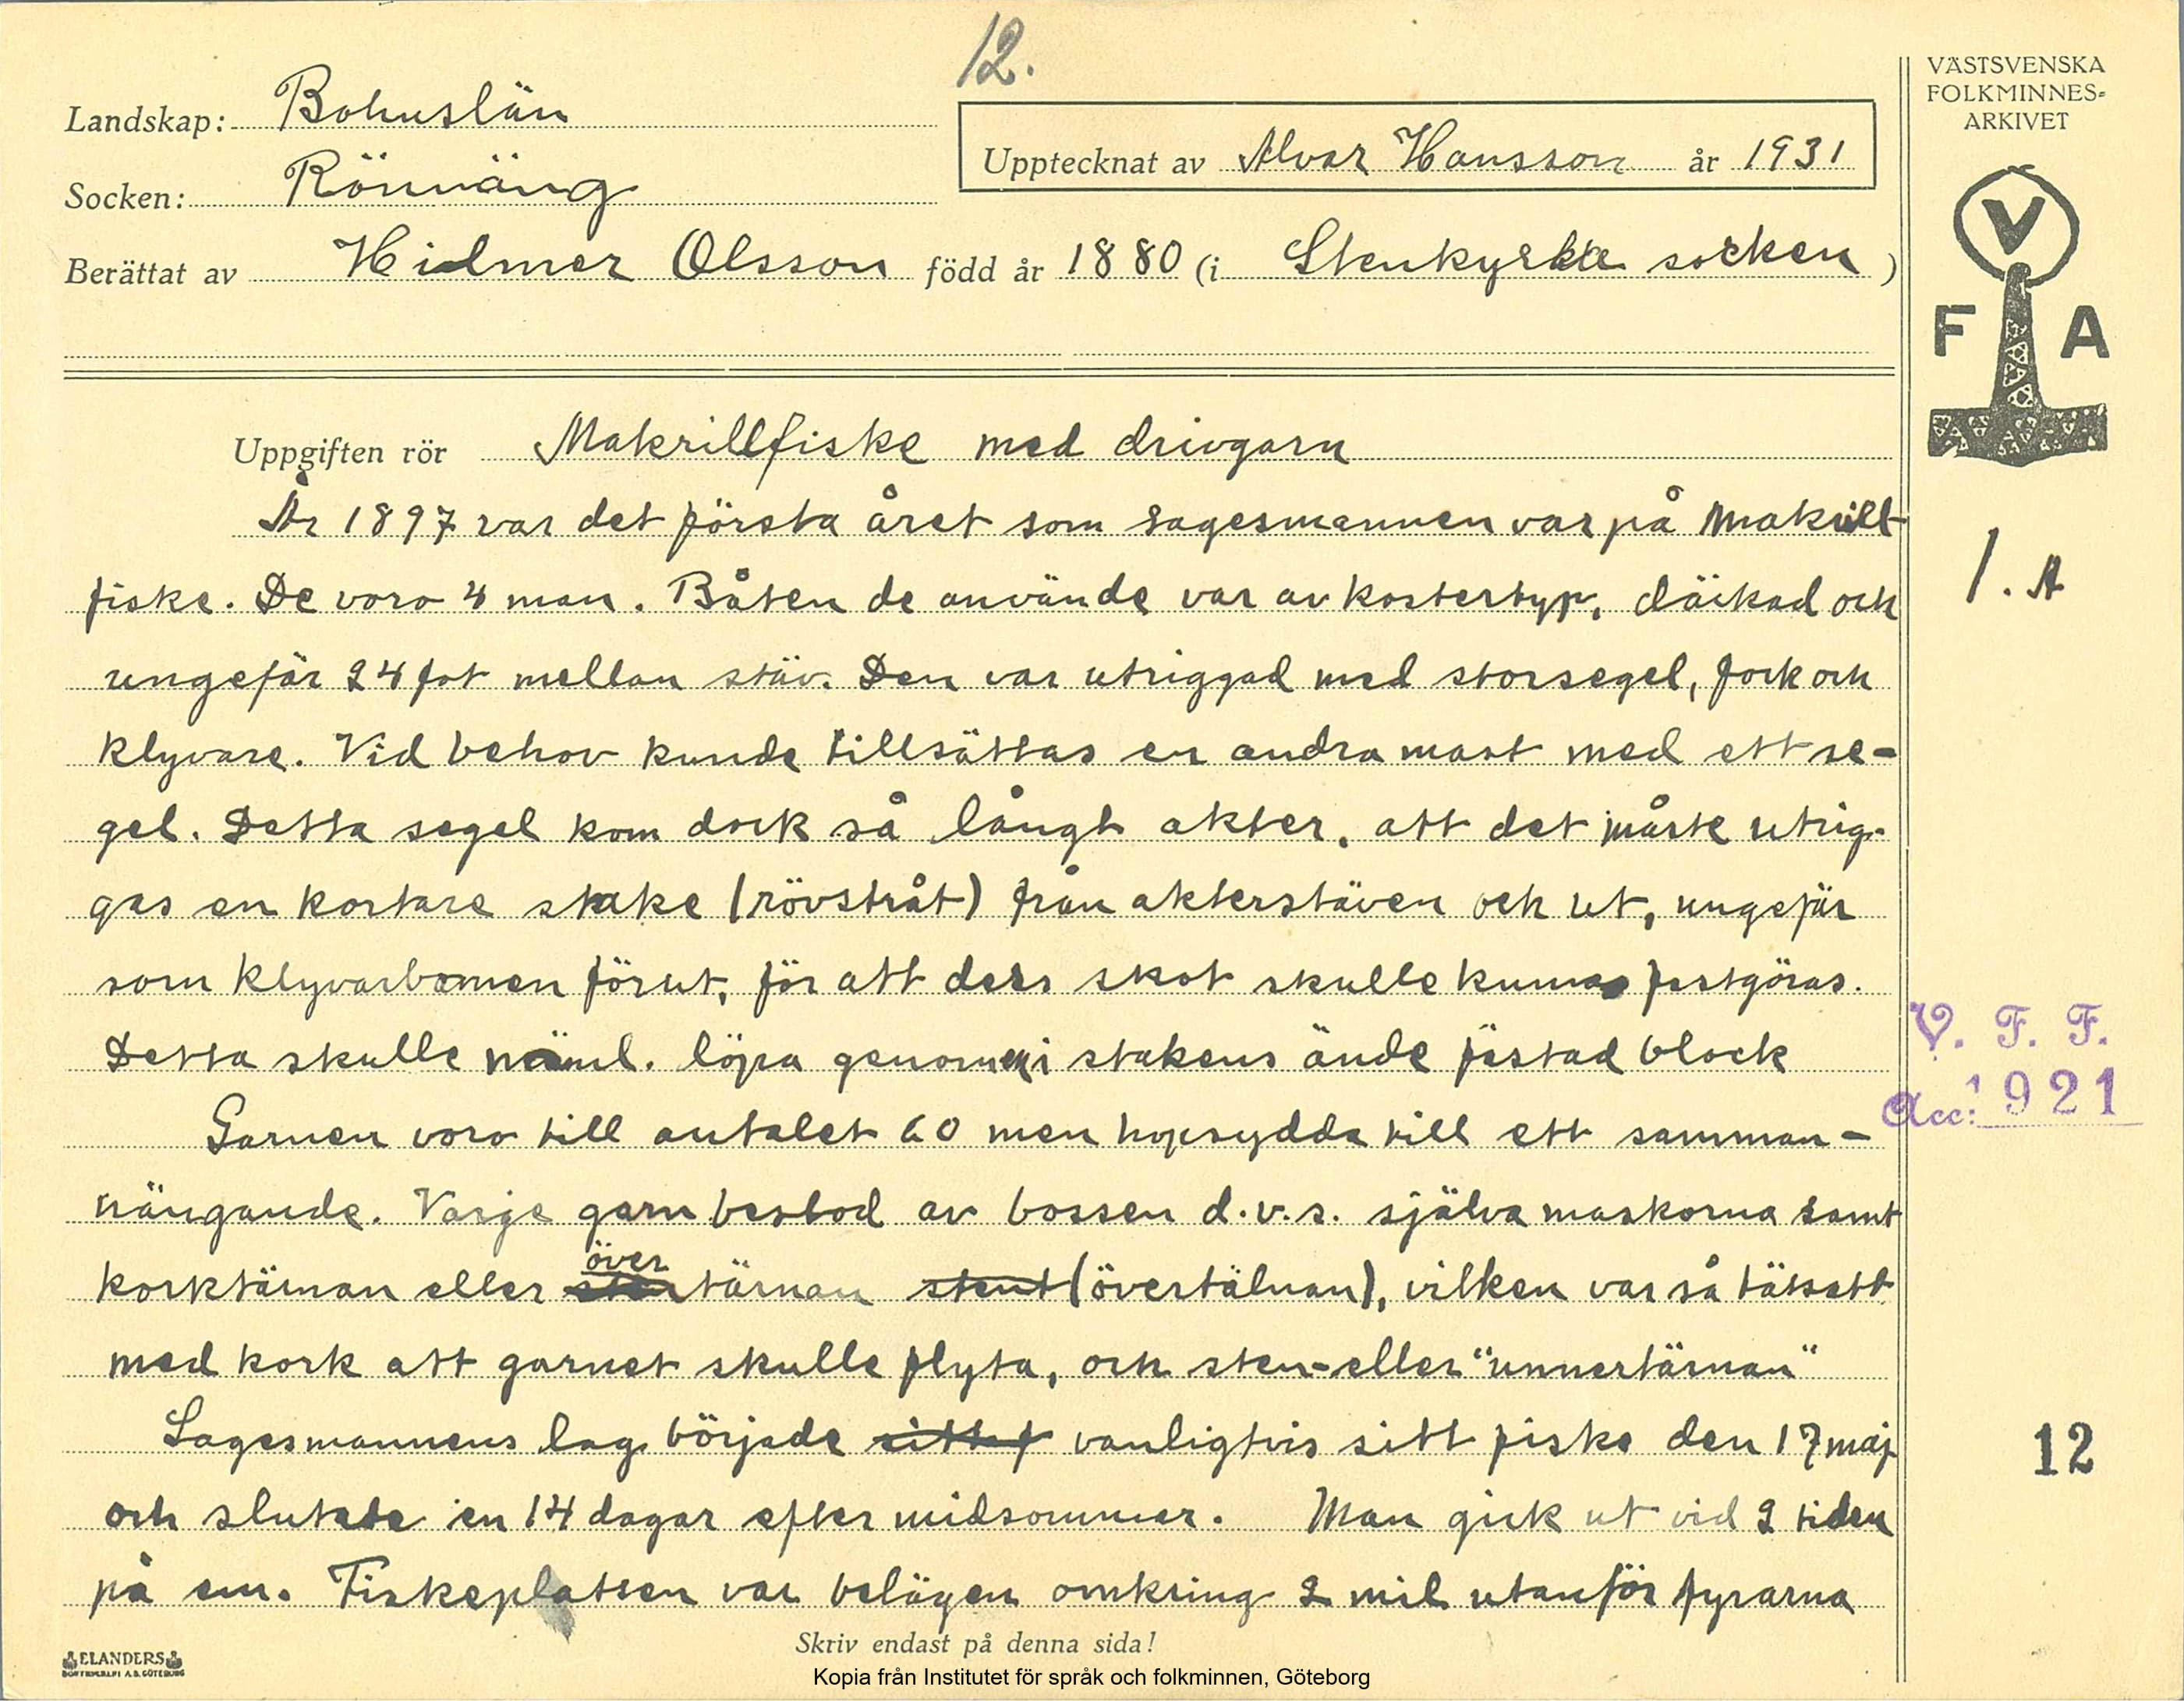 12.
Landskap: Bohuslän
Socken: Rönnäng
Upptecknat av Alvar Hansson år 1931
Berättat av Hilmer Olsson född år 1880 (i Stenkyrka socken)
VÄSTSVENSKA
FOLKMINNES-
ARKIVET
V
F A
Uppgiften rör Makrillfiske med drivgarn
År 1897 var det första året som sagesmannen var på makrill-
fiske. De voro 4 man. Båten de använde var av kostertyp, däckad och
ungefär 24 fot mellan stäv. Den var utriggad med storsegel, fock och
klyvare. Vid behov kunde tillsättas en andra mast med ett se-
gel. Detta segel kom dock så långt akter, att det måste utrig-
gas en kortare stake (rövstråt) från akterstäven och ut, ungefär
som klyvarbomen förut, för att dess skot skulle kunna fastgöras.
Detta skulle näml. löpa genom i stakens ände fästad block
Garnen voro till antalet 60 men hopsydda till ett samman-
hängande. Varje garn bestod av bossen d.v.s. själva maskorna samt
korktärnan eller övertärnan stent (övertälnan), vilken var så tätsatt
med kork att garnet skulle flyta, och sten- eller "unnertärnan"
Sagesmannens lag började sitt f vanligtvis sitt fiske den 17 maj
och slutade en 14 dagar efter midsommar. Man gick ut vid 2 tiden
på em. Fiskeplatsen var belägen omkring 2 mil utanför fyrarna
1. A
V. F. F.
Acc: 1921
12
ELANDERS
BOKTRYCKERI A.B. GÖTEBORG
Skriv endast på denna sida!
Kopia från Institutet för språk och folkminnen, Göteborg